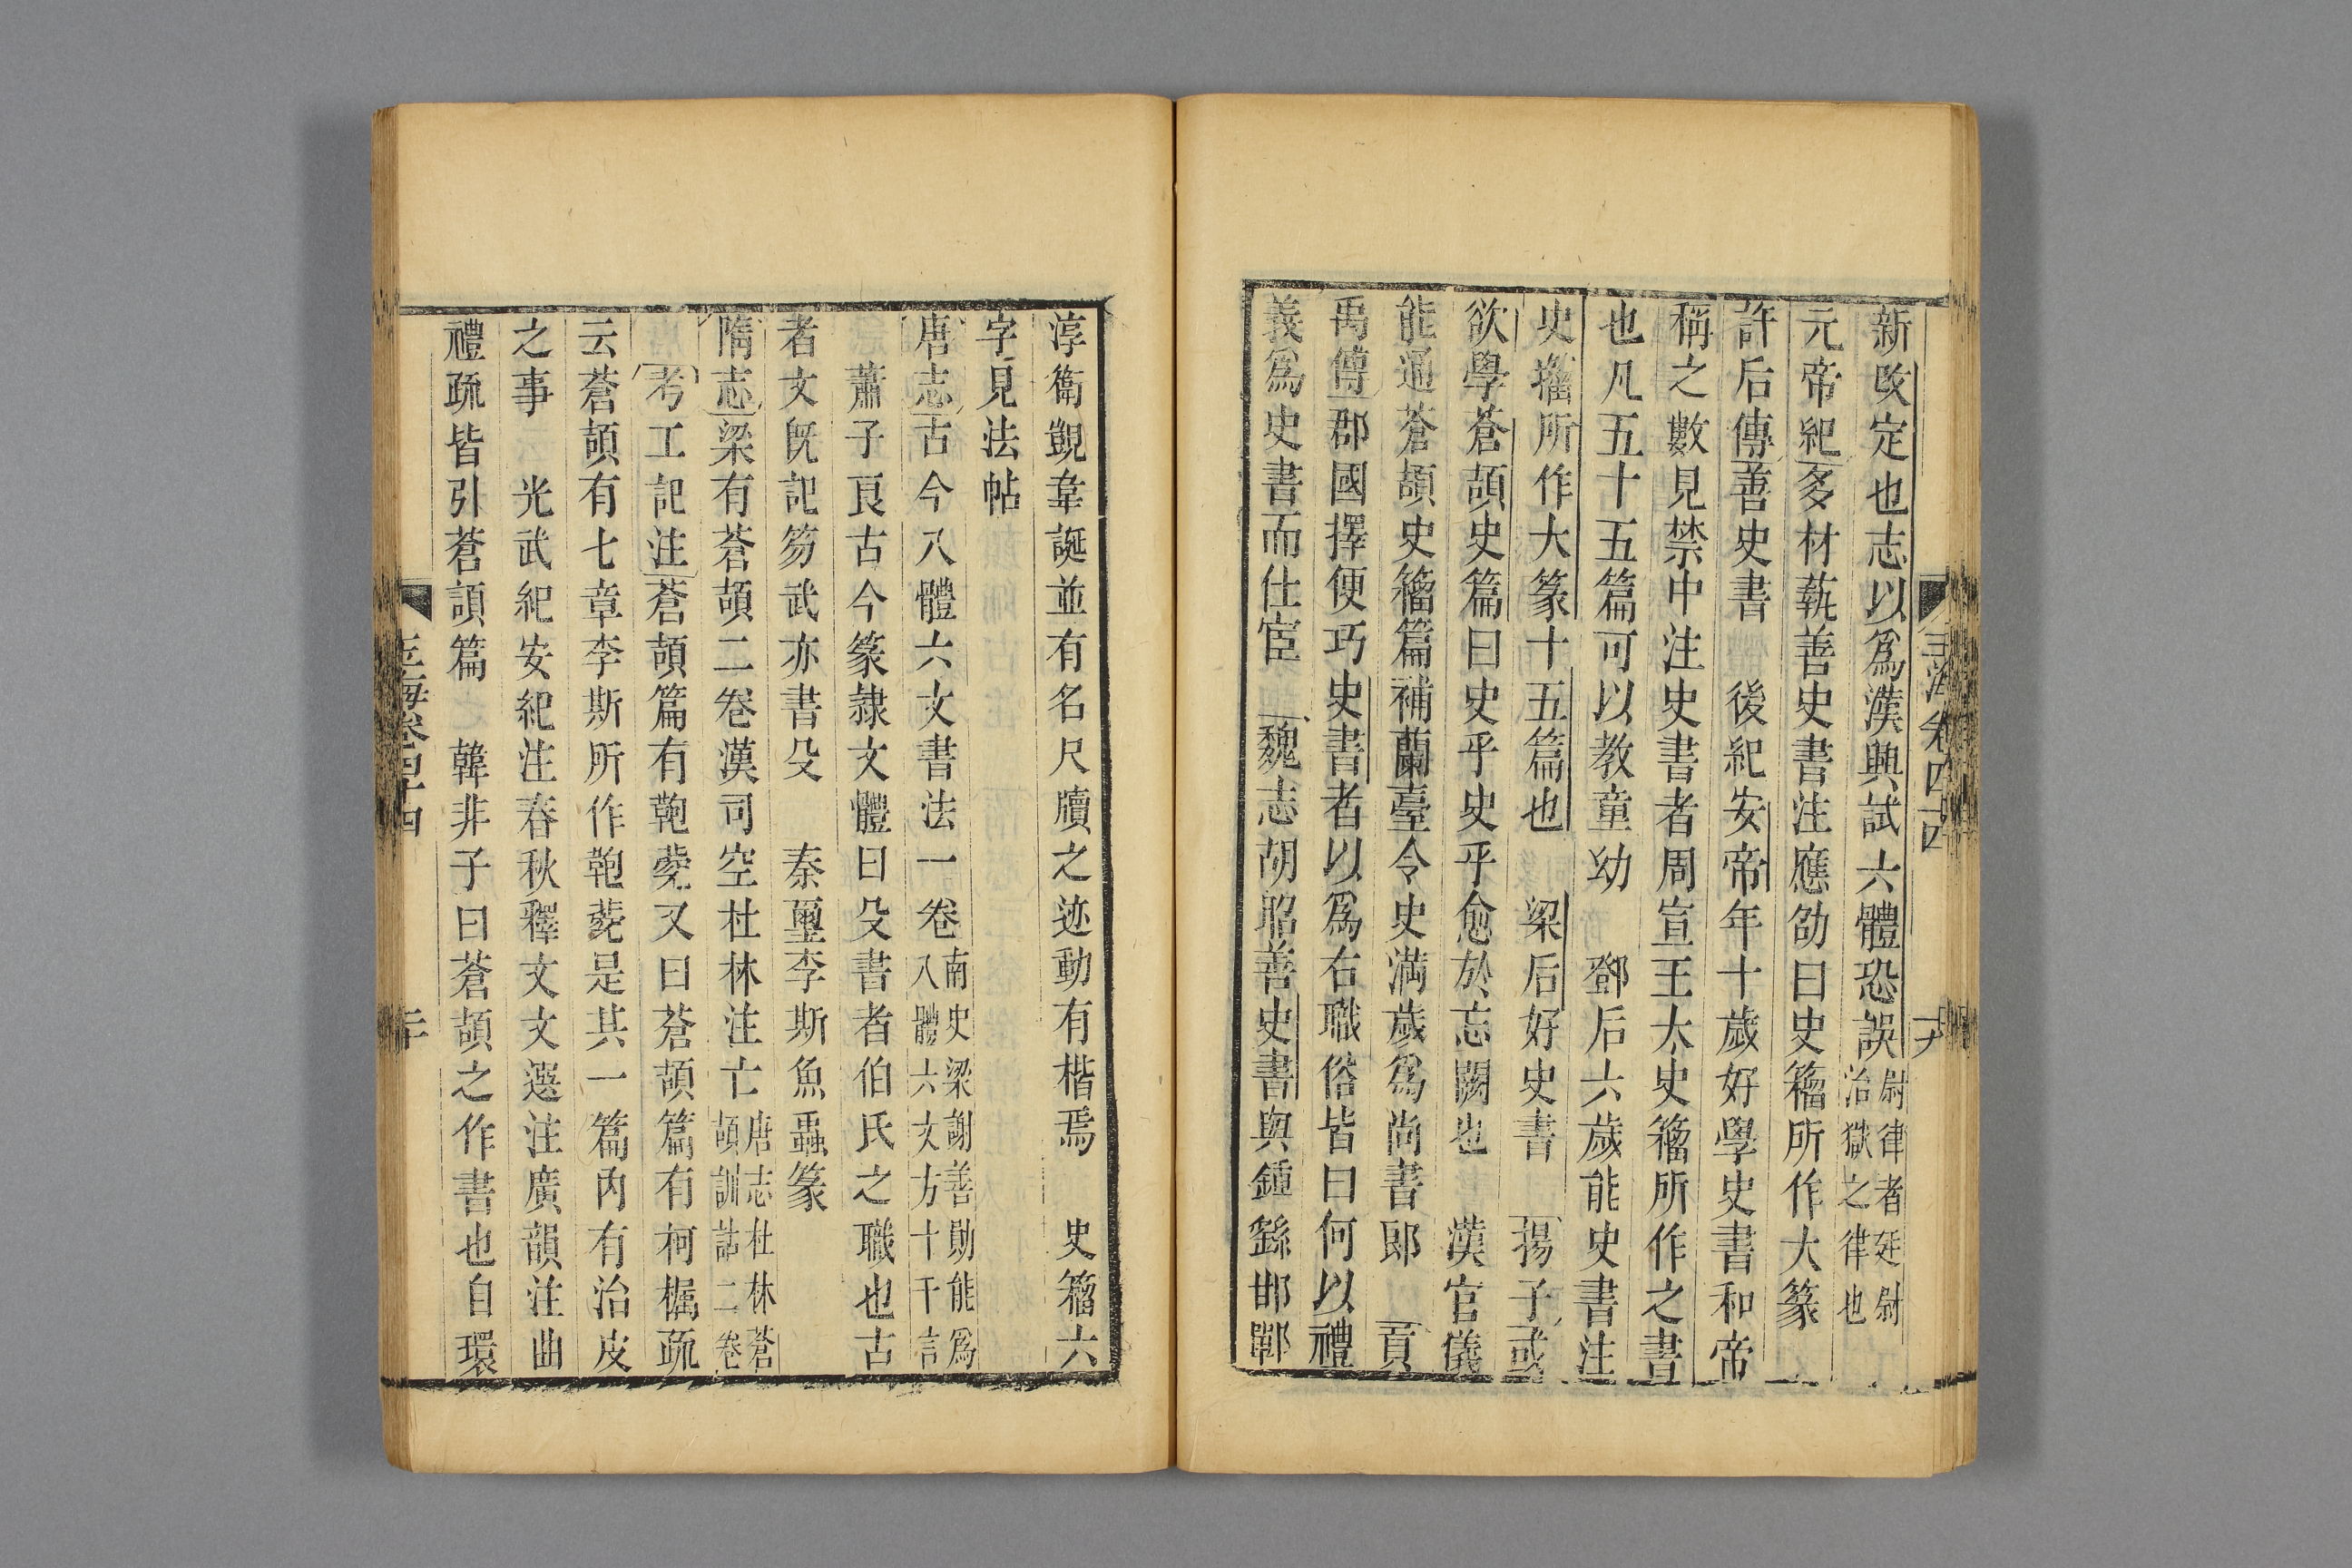 玉海卷四十四
新改定也志以爲漢興試六體恐誤尉律者廷尉治獄之律也
元帝紀多材藝善史書注應劭曰史籀所作大篆
許后傳善史書 後紀安帝年十歲好學史書和帝
稱之數見禁中注史書者周宣王太史籀所作之書
也凡五十五篇可以教童幼 鄧后六歲能史書注
史籀所作大篆十五篇也 梁后好史書 揚子或
欲學蒼頡史篇曰史乎史乎愈於忘闕也 漢官儀
能通蒼頡史籀篇補蘭臺令史滿歲爲尚書郎 貢
禹傳郡國擇便巧史書者以爲右職俗皆曰何以禮
義爲史書而仕宦 魏志胡昭善史書與鍾繇邯鄲
淳衛覬韋誕並有名尺牘之迹動有楷焉 史籀六
字見法帖
唐志古今八體六文書法一卷南史梁謝善勛能爲八體六文方十千言
蕭子良古今篆隸文體曰殳書者伯氏之職也古
者文旣記笏武亦書殳 秦璽李斯魚蟲篆
隋志梁有蒼頡二卷漢司空杜林注亡唐志杜林蒼頡訓詁二卷
考工記注蒼頡篇有鞄㼱又曰蒼頡篇有柯欘疏
云蒼頡有七章李斯所作鞄㼱是其一篇內有治皮
之事 光武紀安紀注春秋釋文文選注廣韻注曲
禮疏皆引蒼頡篇 韓非子曰蒼頡之作書也自環
玉海卷四十四
二十